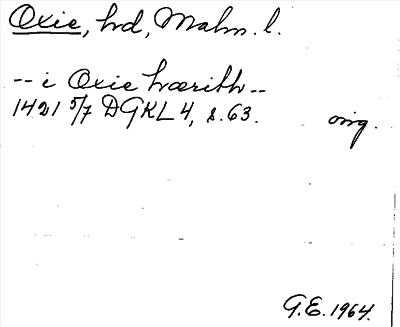 Oxie, hd, Malm. l.
-- i Oxie hærith --
1421 5/7 DGKL 4, s. 63. orig.
G.E. 1964.